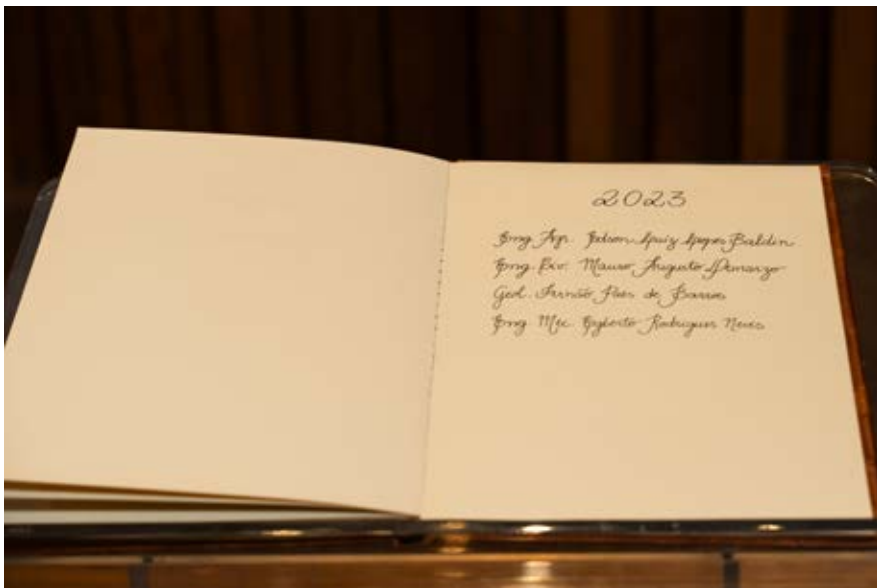 2023
Eng. Agr. Luiz Lopes Baldin
Eng. Civ. Mauro Augusto Demarzo
Geol. Fernão Paes de Barros
Eng. Mec. Egberto Rodrigues Neves